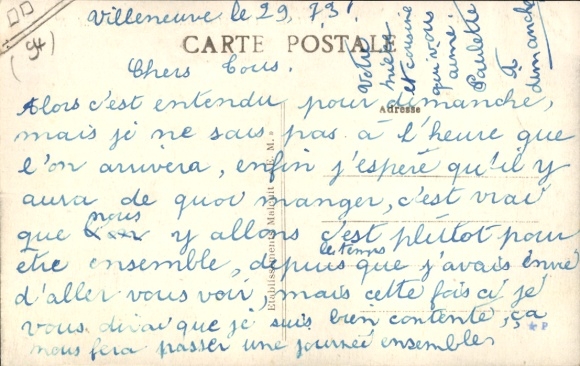 Villeneuve le 29, 7 31
(94)
CARTE POSTALE
Chers Tous.
Adresse
Alors c'est entendu pour dimanche,
mais je ne sais pas à l'heure que
l'on arrivera, enfin j'espère qu'il y
aura de quoi manger, c'est vrai
que nous y allons c'est plûtot pour
être ensemble, depuis le temps que j'avais envie
d'aller vous voir, mais cette fois ci je
vous dirai que je suis bien contente, ça
nous fera passer une journée ensemble
Votre
nièce
et cousine
qui vous
aime.
Paulette
À
dimanche
Etablissements Malcuit